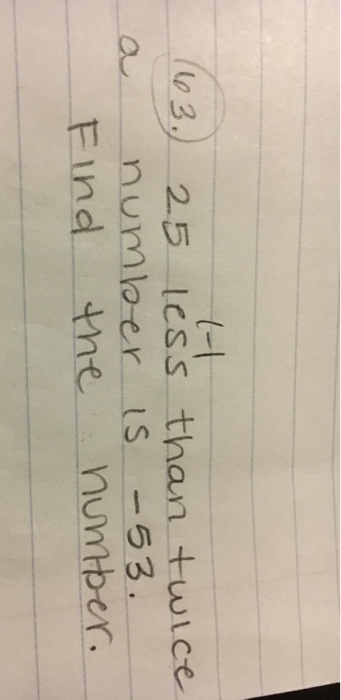 (-)
163. 25 less than twice
a number is -53.
Find the number.